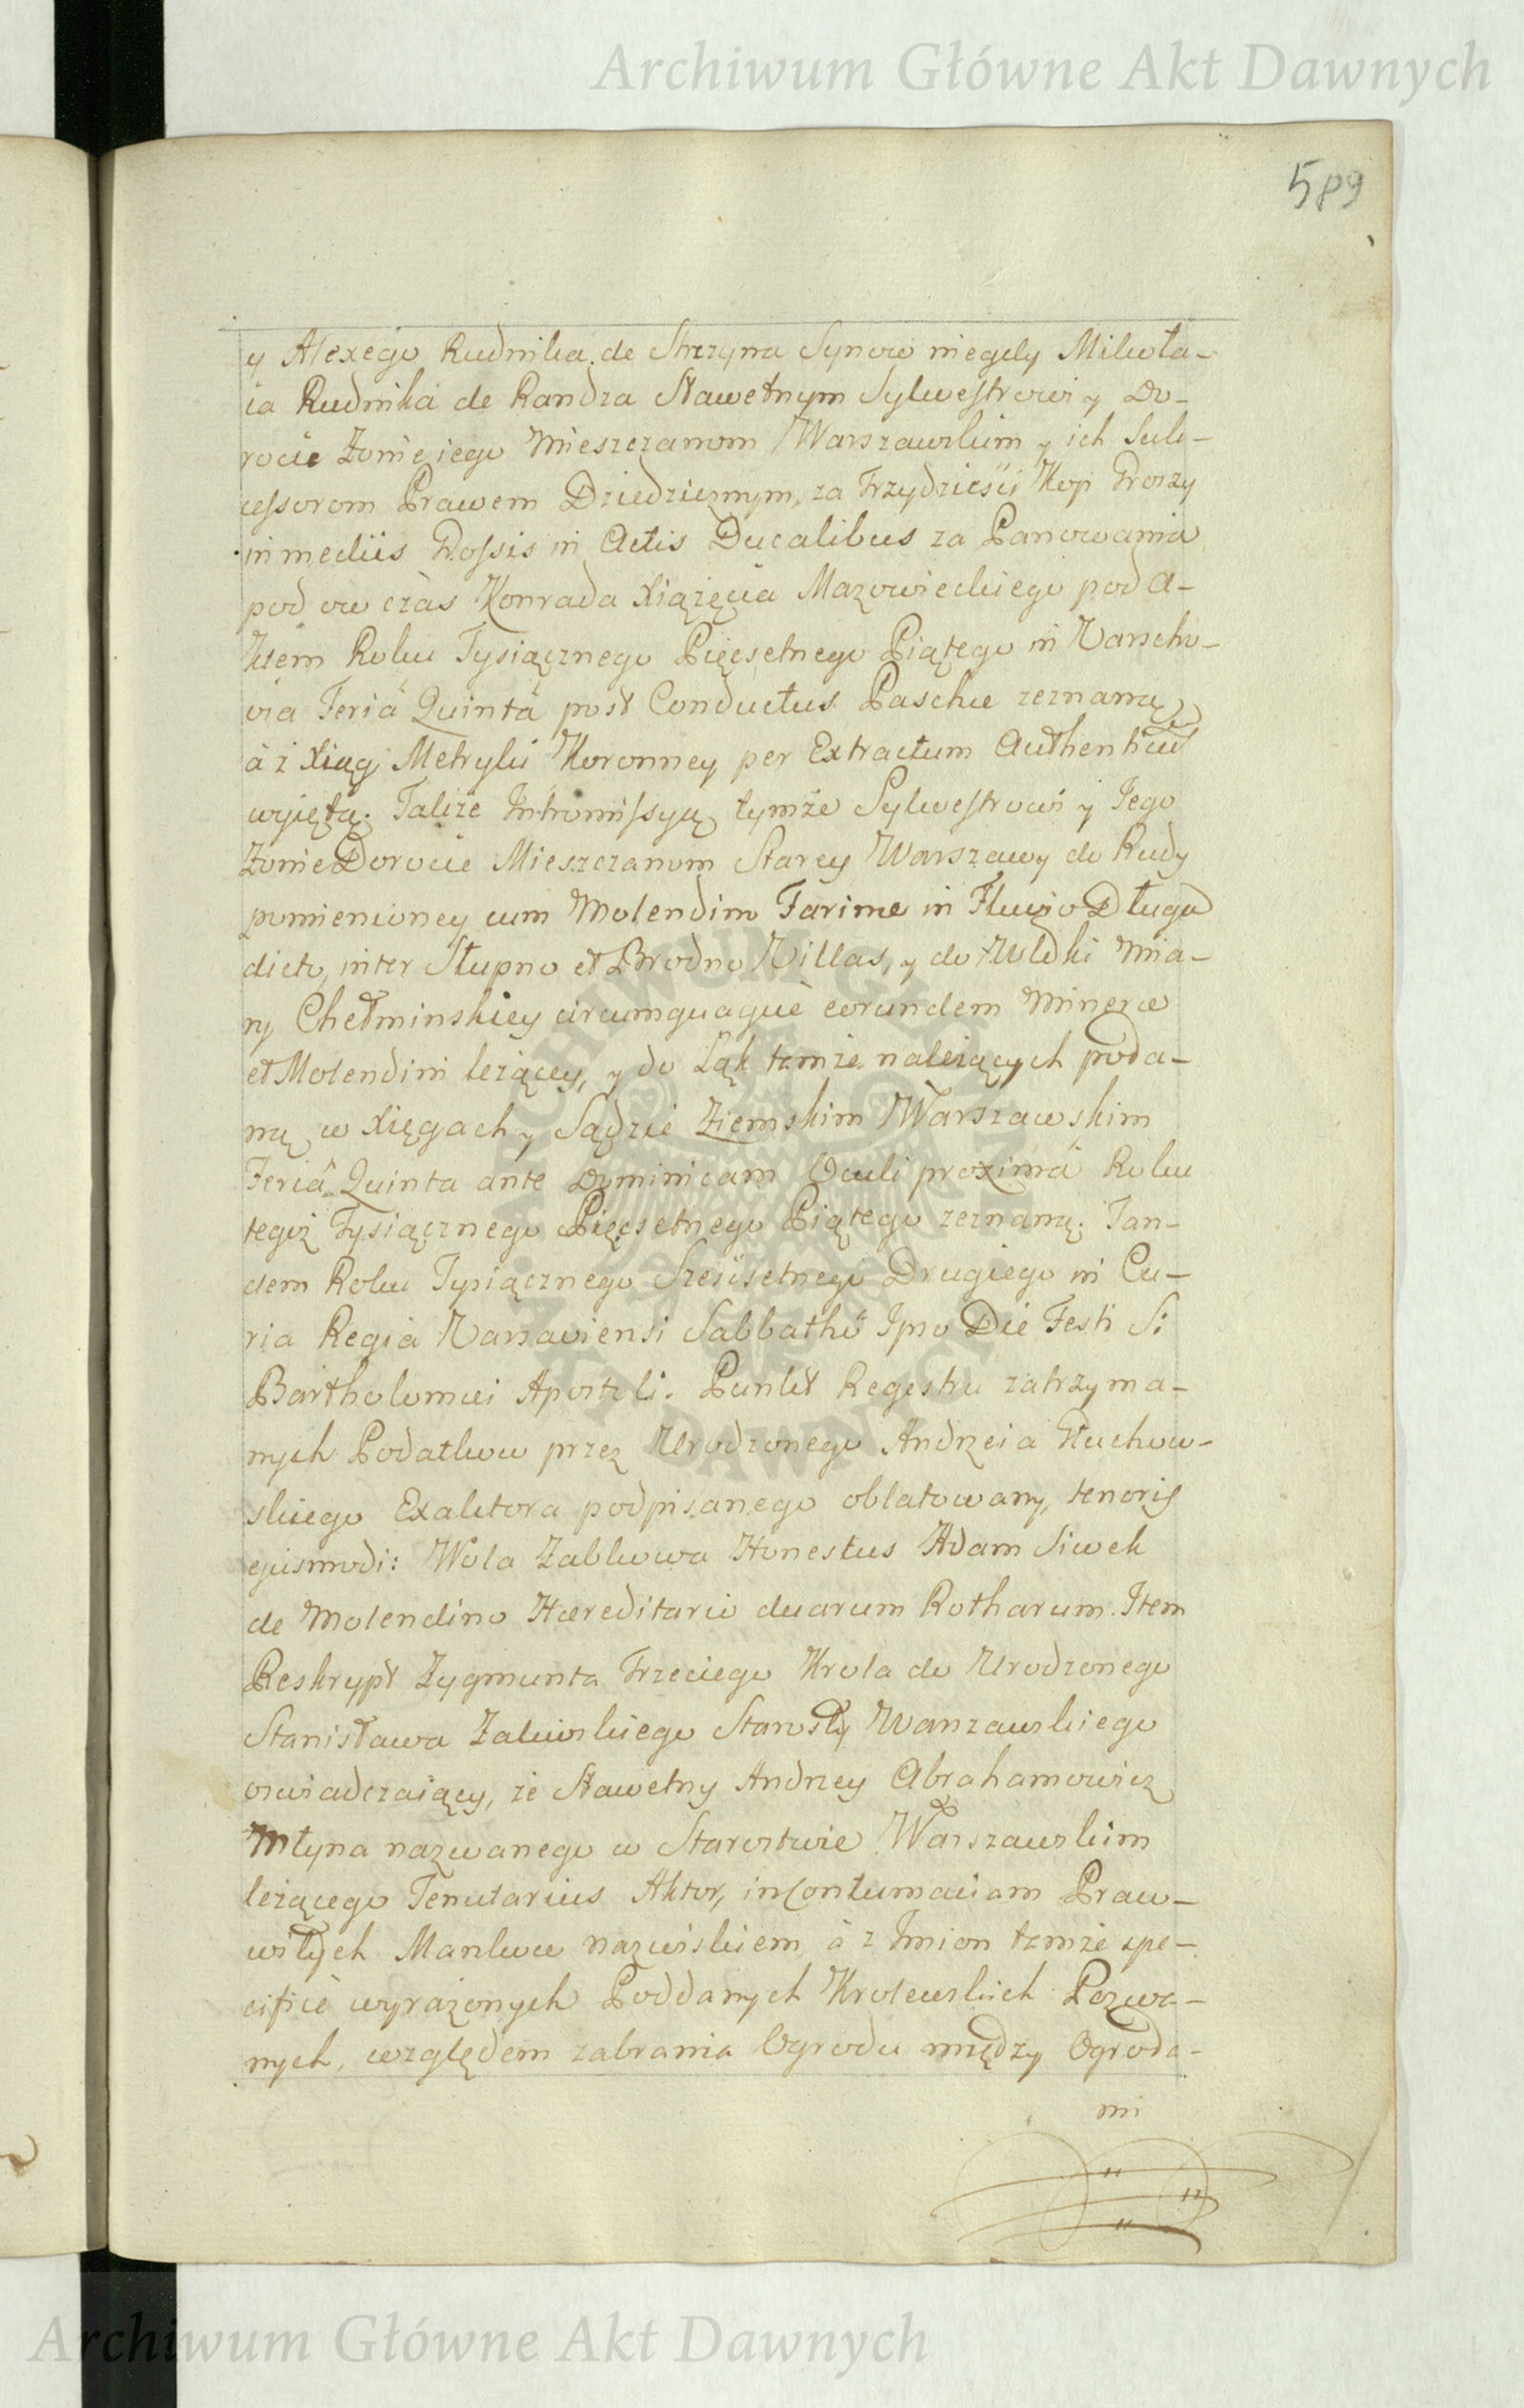 Archiwum Główne Akt Dawnych
589
y Alexego Rudnika de Strzyna Synow niegdy Mikoła-
ia Rudnika de Randza Sławetnym Sylwestrowi y Do-
rocie Żonie iego Mieszczanom Warszawskim y ich Suk-
cessorom Prawem Dziedzicznym, za Trzydzieści Kop Groszy
in mediis Grossis in Actis Ducalibus za Panowania
pod ow czas Konrada Xiążęcia Mazowieckiego pod A-
ktem Roku Tysiącznego Pięcsetnego Piątego in Varscho-
via Feriâ Quintâ post Conductus Paschæ zeznaną,
à z Xiąg Metryki Koronney per Extractum Authenticum
wyiętą. Także Intromissyą tymże Sylwestrowi y Jego
Żonie Dorocie Mieszczanom Starey Warszawy do Rudy
pomienioney cum Molendino Farinæ in Fluvio Długa
dicto, inter Słupno et Brodno Villas, y do Włoki Mia-
ry Chełminskiey circumquaquè eorundem Mineræ
et Molendini leżącey, y do Łąk tamże należących poda-
ną w Xięgach y Sądzie Ziemskim Warszawskim
Feriâ Quinta ante Dominicam Oculi proximâ Roku
tegoż Tysiącznego Pięcsetnego Piątego zeznaną. Tan-
dem Roku Tysiącznego Szescsetnego Drugiego in Cu-
ria Regia Varsaviensi Sabbathô Ipso Die Festi S:
Bartholomæi Apostoli. Punkt Regestru zatrzyma-
nych Podatkow przez Urodzonego Andrzeia Głuchow-
skiego Exaktora podpisanego oblatowany, tenoris
ejusmodi: Wola Ząbkowa Honestus Adam Siwek
de Molendino Hæreditario duarum Rotharum. Item
Reskrypt Zygmunta Trzeciego Krola do Urodzonego
Stanisława Zaliwskiego Starosty Warszawskiego
oswiadczaiący, że Sławetny Andrzey Abrahamowicz
Młyna nazwanego w Starostwie Warszawskim
leżącego Tenutarius Aktor, in Contumaciam Praw-
witych Mankow nazwiskiem, à z Imion tamże spe-
cificè wyrażonych Poddanych Krolewskich Pozwa-
nych, względem zabrania Ogrodu między Ogroda-
mi
Archiwum Główne Akt Dawnych